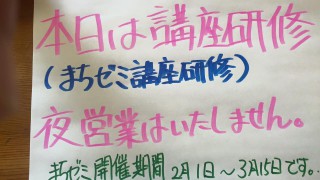 本日は講座研修
(まちゼミ講座研修)
夜営業はいたしません。
まちゼミ開催期間 2月1日~3月15日です。